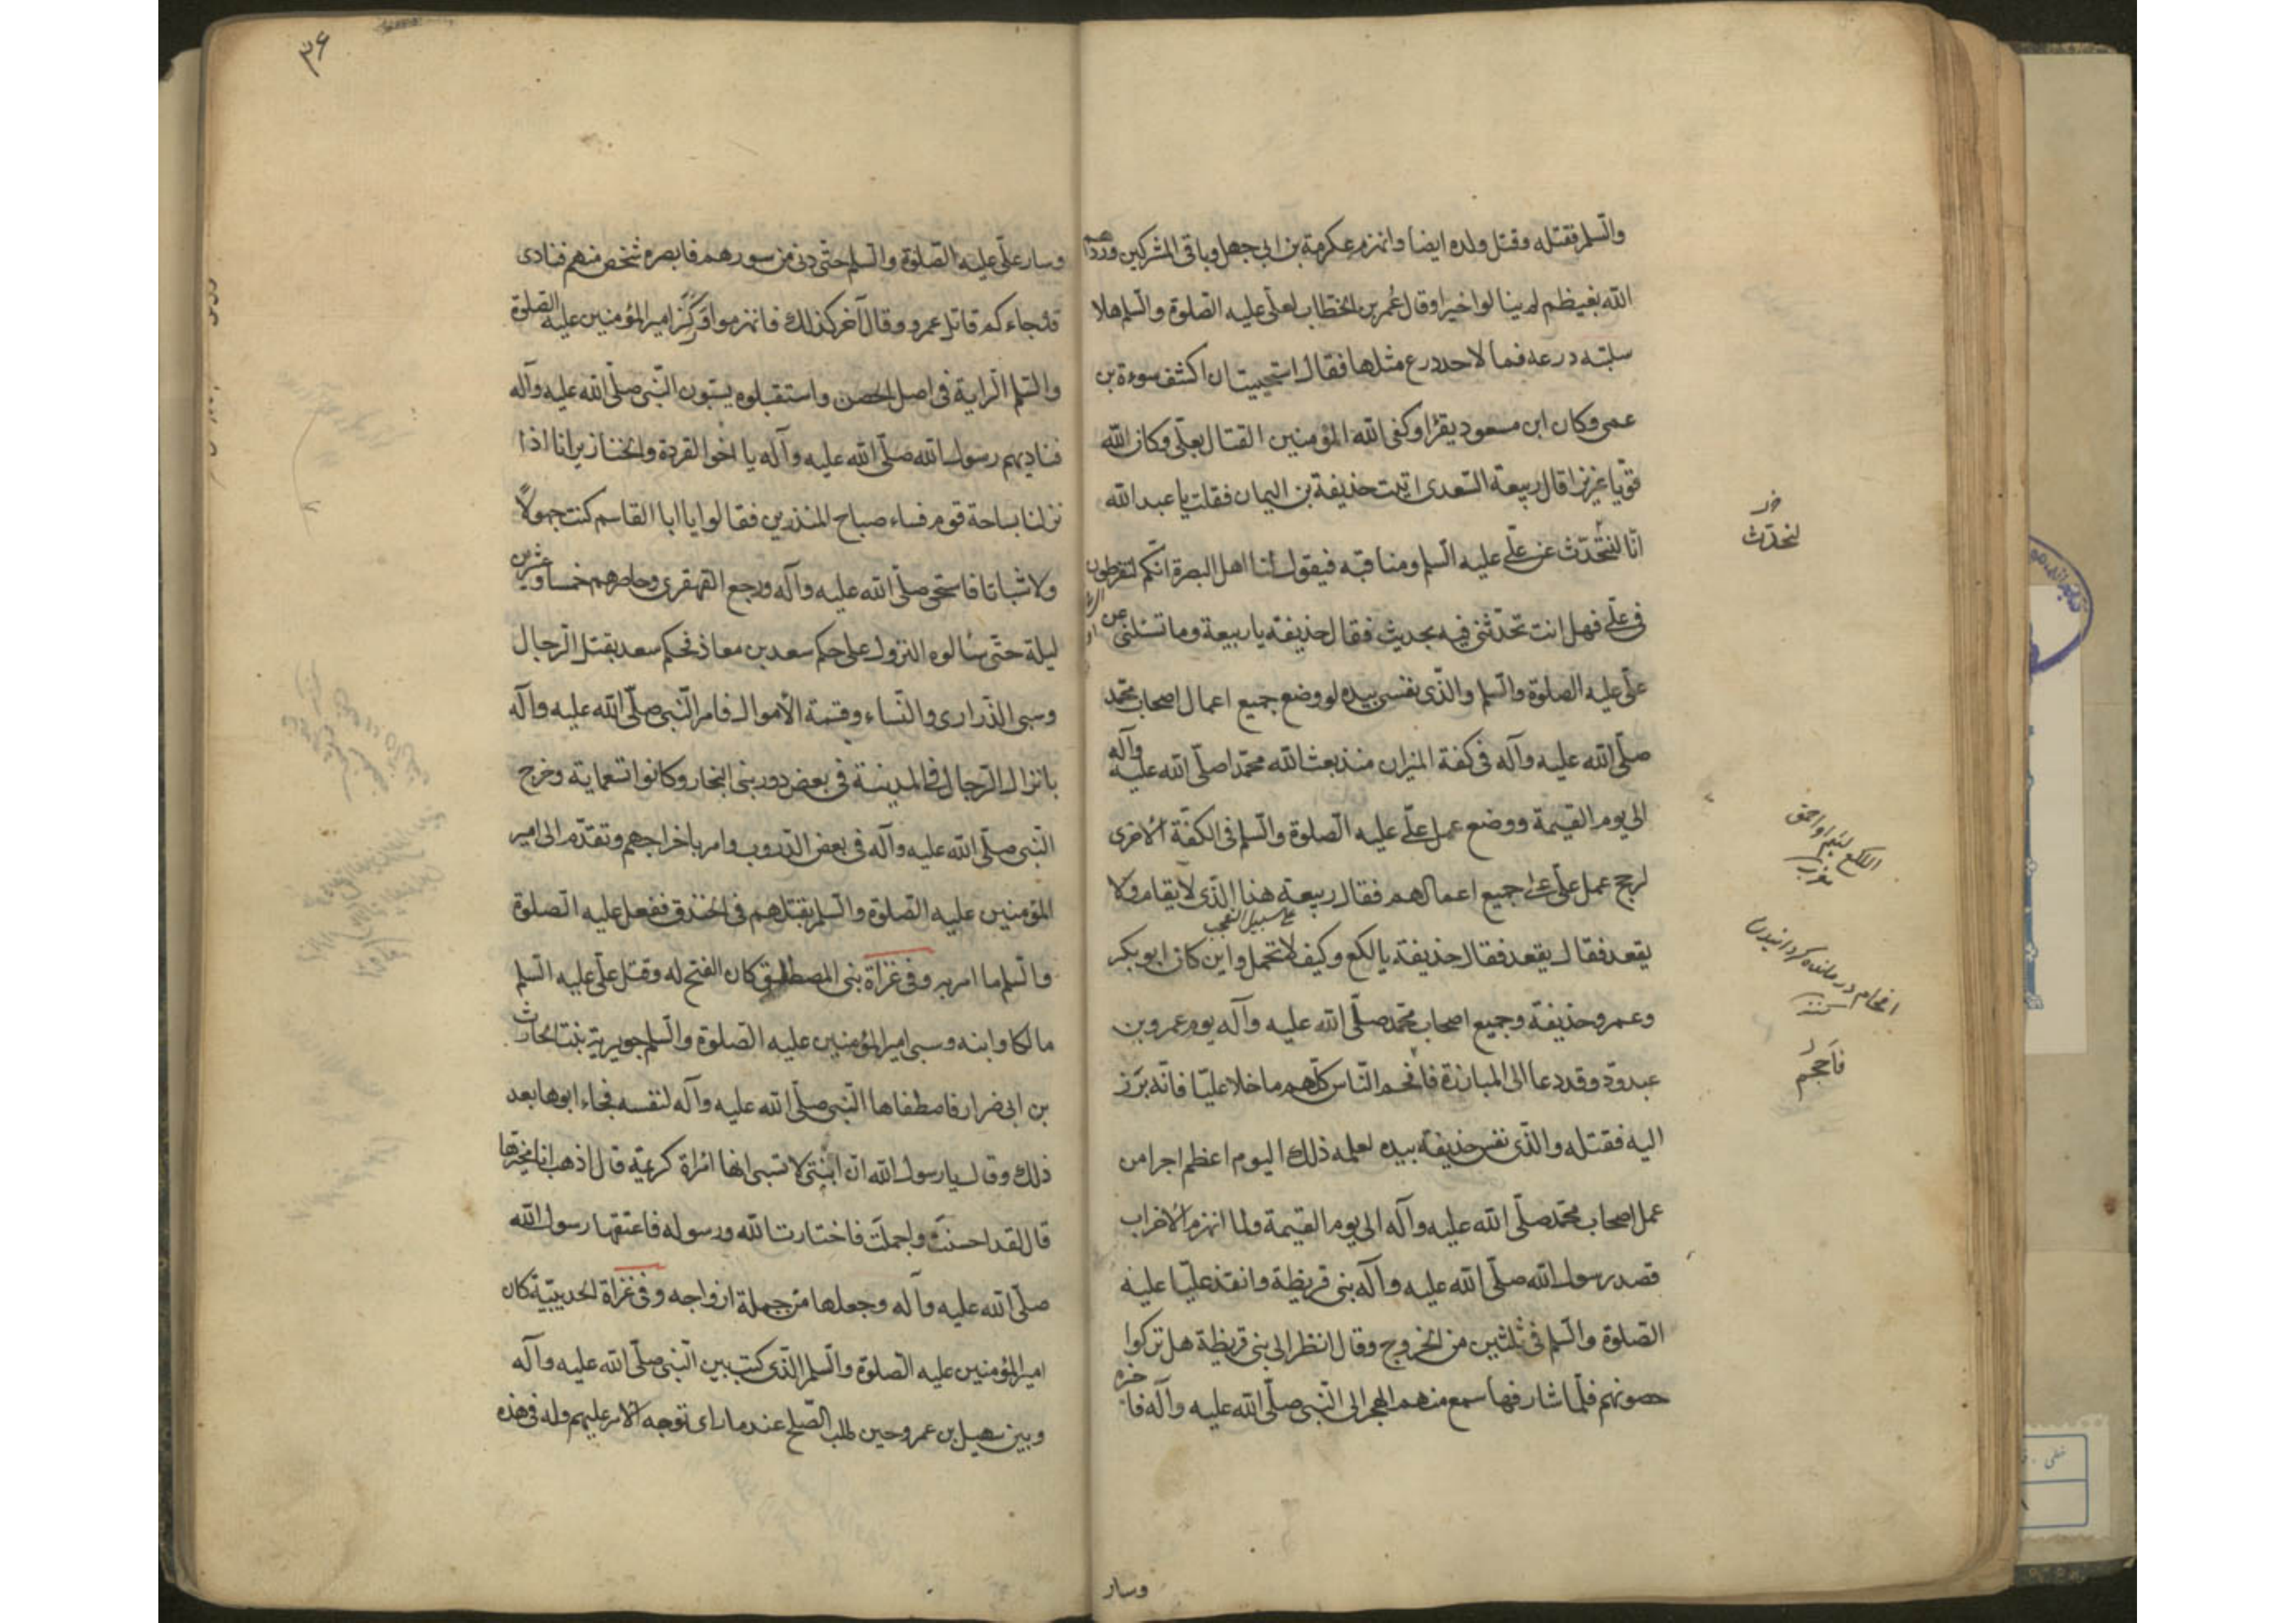 والسلم فقتله وقتل ولده ايضا وانهزم عكرمة بن ابي جهل وباقي المشركين وردهم
الله بغيظهم لم ينالوا خيرا وقال عمر بن الخطاب لعلي عليه الصلوة والسلم هلا
سلبته درعه فما لاحد درع مثلها فقال استحييت ان اكشف سوءة بن
عمى وكان ابن مسعود يقرا وكفى الله المؤمنين القتال بعلي وكان الله
قويا عزيزا قال ربيعة السعدى اتيت حذيفة بن اليمان فقلت يا عبد الله
انا لنتحدث عن علي عليه السلم ومناقبه فيقول لنا اهل البصرة انكم لتفرطون
فى علي فهل انت تحدثنى فيه بحديث فقال حذيفة يا ربيعة وما تسئلنى عن
علي عليه الصلوة والسلم والذى نفسى بيده لو وضع جميع اعمال اصحاب محمد
صلى الله عليه وآله فى كفة الميزان منذ بعث الله محمدا صلى الله عليه وآله
الى يوم القيمة ووضع عمل علي عليه الصلوة والسلم فى الكفة الاخرى
لرجح عمل علي على جميع اعمالهم فقال ربيعة هذا الذى لا يقام ولا
على سبيل التعجب
يقعد فقال يقعد فقال حذيفة يا لكع وكيف لا تحمل واين كان ابو بكر
وعمر وحذيفة وجميع اصحاب محمد صلى الله عليه وآله يوم عمرو بن
عبدود وقد دعا الى المبارزة فافحم الناس كلهم ما خلا عليا فانه برز
اليه فقتله والذى نفس حذيفة بيده لعمله ذلك اليوم اعظم اجرا من
عمل اصحاب محمد صلى الله عليه وآله الى يوم القيمة ولما انهزم الاحزاب
قصد رسول الله صلى الله عليه وآله بنى قريظة وانفذ عليا عليه
الصلوة والسلم فى ثلثين من الخزرج وقال انظر الى بنى قريظة هل تركوا
حصونهم فلما شارفها سمع منهم الهجر الى النبى صلى الله عليه وآله فاخبره
وسار
لنحدث
اللكع لئيم واحمق
افحام درمانده گردانيدن
فاحجم
۳۶
وسار علي عليه الصلوة والسلم حتى دنى من سورهم فابصره شخص منهم فنادى
قد جاءكم قاتل عمرو وقال آخر كذلك فانهزموا وركز امير المؤمنين عليه الصلوة
والسلم الراية فى اصل الحصن واستقبلوه يسبون النبى صلى الله عليه وآله
فناديهم رسول الله صلى الله عليه وآله يا اخو القردة والخنازير انا اذا
نزلنا بساحة قوم فساء صباح المنذرين فقالوا يا ابا القاسم كنت جهولا
ولا سبابا فاستحى صلى الله عليه وآله ورجع القهقرى وحاصرهم خمسا وعشرين
ليلة حتى سالوه النزول على حكم سعد بن معاذ فحكم سعد بقتل الرجال
وسبى الذرارى والنساء وقسمة الاموال فامر النبى صلى الله عليه وآله
بانزال الرجال فى المدينة فى بعض دور بنى النجار وكانوا تسعماية وخرج
النبى صلى الله عليه وآله فى بعض الدروب وامر باخراجهم وتقدم الى امير
المؤمنين عليه الصلوة والسلم بقتلهم فى الخندق ففعل عليه الصلوة
والسلم ما امر به وفى غزاة بنى المصطلق كان الفتح له وقتل علي عليه السلم
مالكا وابنه وسبى امير المؤمنين عليه الصلوة والسلم جويرية بنت الحارث
بن ابى ضرار فاصطفاها النبى صلى الله عليه وآله لنفسه فجاء ابوها بعد
ذلك وقال يا رسول الله ان ابنتى لا تسبى انها امراة كريمة قال اذهب انا مخيرها
قال لقد احسنت واجملت فاختارت الله ورسوله فاعتقها رسول الله
صلى الله عليه وآله وجعلها من جملة ازواجه وفى غزاة الحديبية كان
امير المؤمنين عليه الصلوة والسلم الذى كتب بين النبى صلى الله عليه وآله
وبين سهيل بن عمرو حين طلب الصلح عند ما راى توجه الامر عليهم وله فى هذه